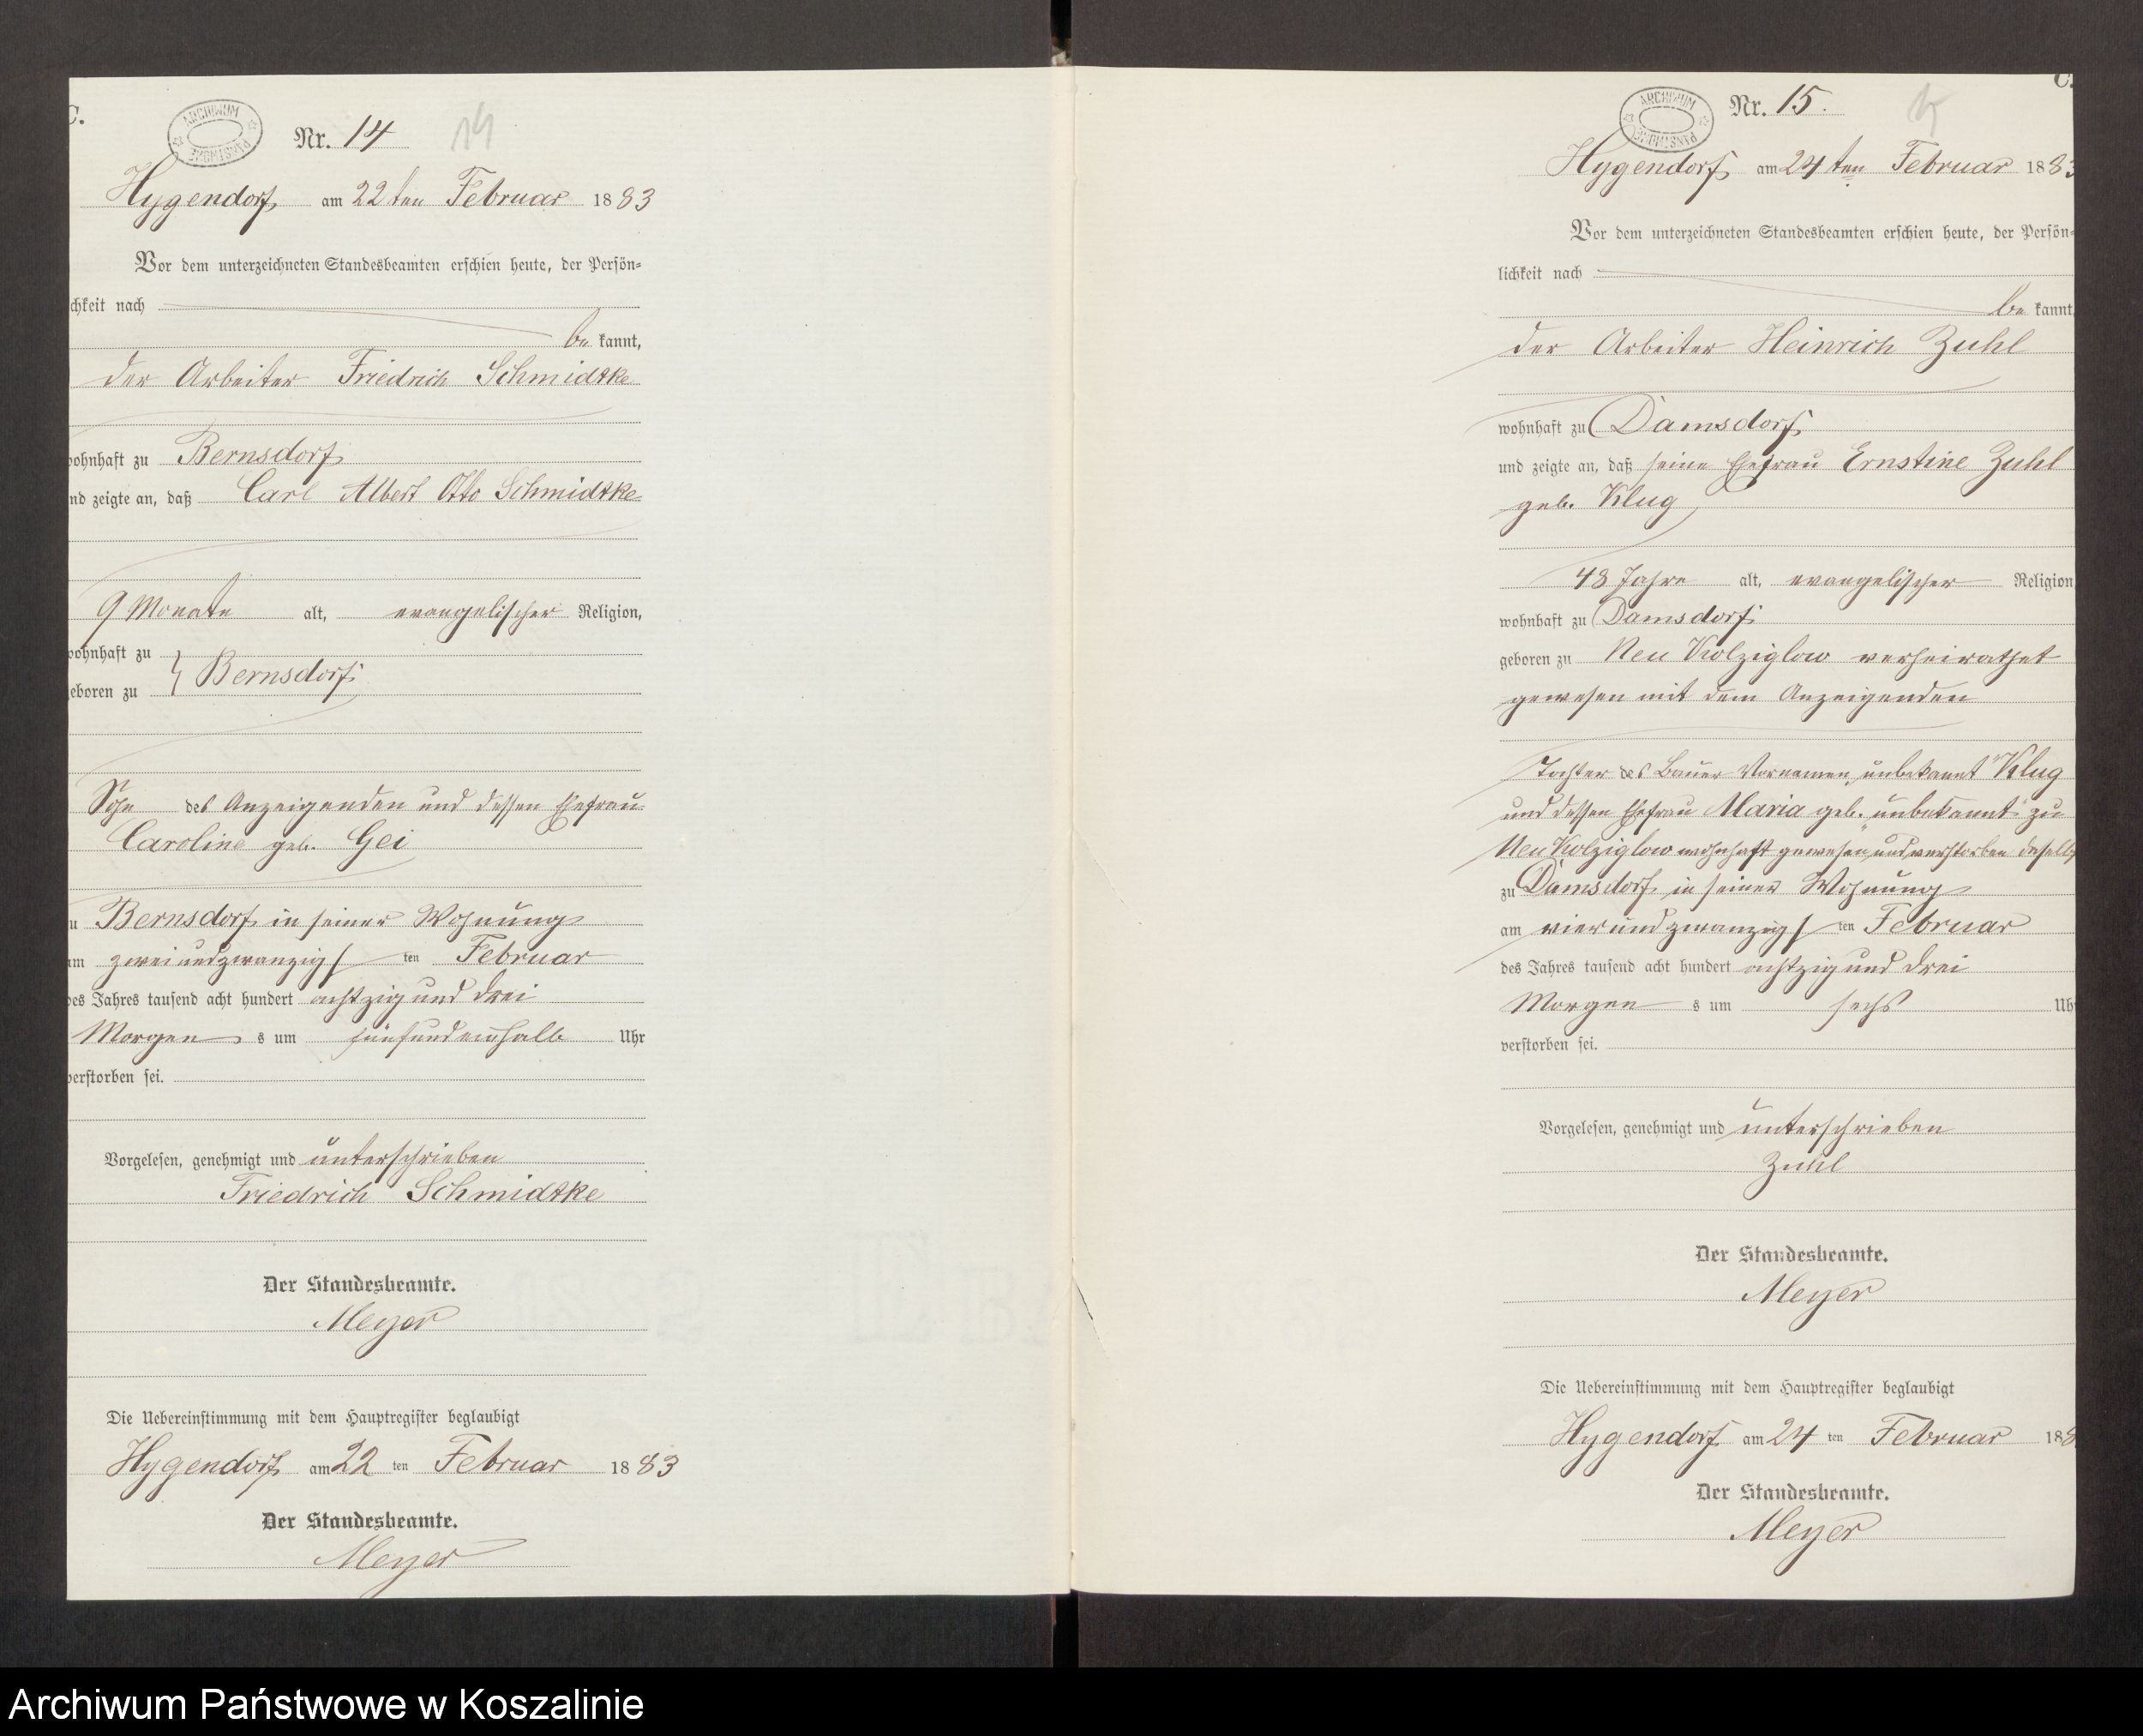 C.
ARCHIWUM PAŃSTWOWE
Nr. 14
14
Hygendorf am 22ten Februar 1883
Vor dem unterzeichneten Standesbeamten erschien heute, der Persön=
chkeit nach
be kannt,
der Arbeiter Friedrich Schmidtke
wohnhaft zu Bernsdorf
nd zeigte an, daß Carl Albert Otto Schmidtke
9 Monate alt, evangelischer Religion,
wohnhaft zu
eboren zu } Bernsdorf
Sohn des Anzeigenden und dessen Ehefrau
Caroline geb. Gei
u Bernsdorf in seiner Wohnung
am zweiundzwanzigs ten Februar
des Jahres tausend acht hundert achtzig und drei
Morgen s um fünfundeinhalb Uhr
verstorben sei.
Vorgelesen, genehmigt und unterschrieben
Friedrich Schmidtke
Der Standesbeamte.
Meyer
Die Uebereinstimmung mit dem Hauptregister beglaubigt
Hygendorf am 22 ten Februar 1883
Der Standesbeamte.
Meyer
C.
ARCHIWUM PAŃSTWOWE
Nr. 15.
15
Hygendorf am 24ten Februar 1883
Vor dem unterzeichneten Standesbeamten erschien heute, der Persön=
lichkeit nach
be kannt,
der Arbeiter Heinrich Zuhl
wohnhaft zu Damsdorf
und zeigte an, daß seine Ehefrau Ernstine Zuhl
geb. Klug
48 Jahre alt, evangelischer Religion
wohnhaft zu Damsdorf
geboren zu Neu Kolziglow verheirathet
gewesen mit dem Anzeigenden
Tochter des Bauer Vornamen „unbekannt" Klug
und dessen Ehefrau Maria geb. „unbekannt" zu
Neu Kolziglow wohnhaft gewesen und verstorben daselbst
zu Damsdorf in seiner Wohnung
am vierundzwanzigs ten Februar
des Jahres tausend acht hundert achtzig und drei
Morgen s um sechs Uh
verstorben sei.
Vorgelesen, genehmigt und unterschrieben
Zuhl
Der Standesbeamte.
Meyer
Die Uebereinstimmung mit dem Hauptregister beglaubigt
Hygendorf am 24 ten Februar 188
Der Standesbeamte.
Meyer
Archiwum Państwowe w Koszalinie